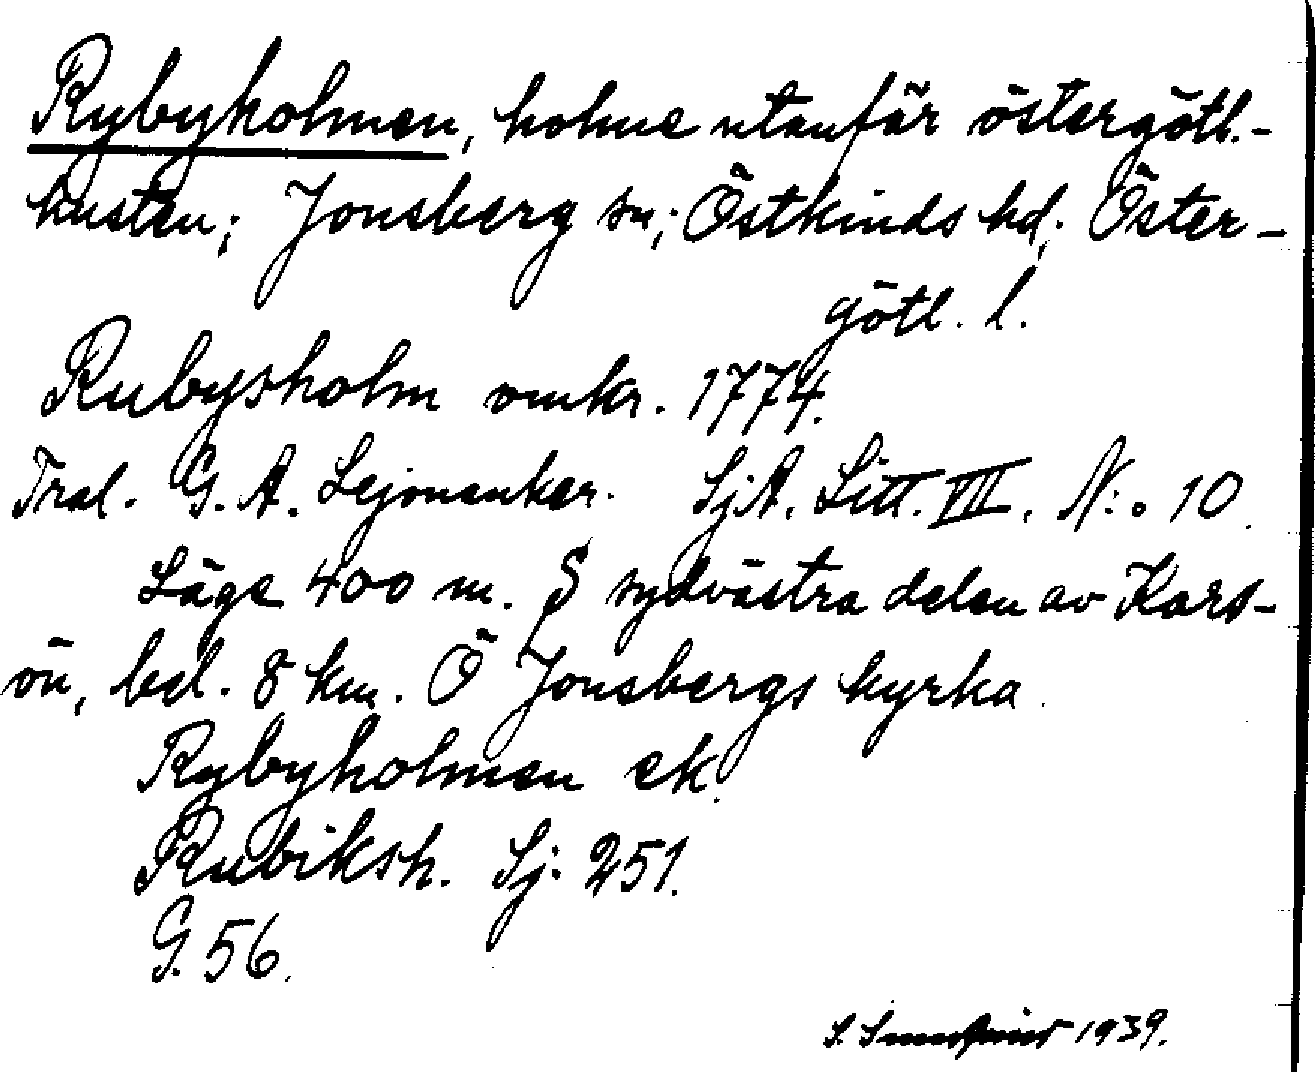 Rybyholmen, holme utanför östergötl.-
kusten; Jonsberg sn; Östkinds hd; Öster-
götl. l.
Rubysholm omkr. 1774.
Tral. G. A. Lejonanker. SjA. Litt. VIII. N:o 10.
Läge 400 m. S sydvästra delen av Kors-
ön, bel. 8 km. Ö Jonsbergs kyrka.
Rybyholmen ek.
Rubiksh. Sj. 251.
G. 56.
S. 1939.